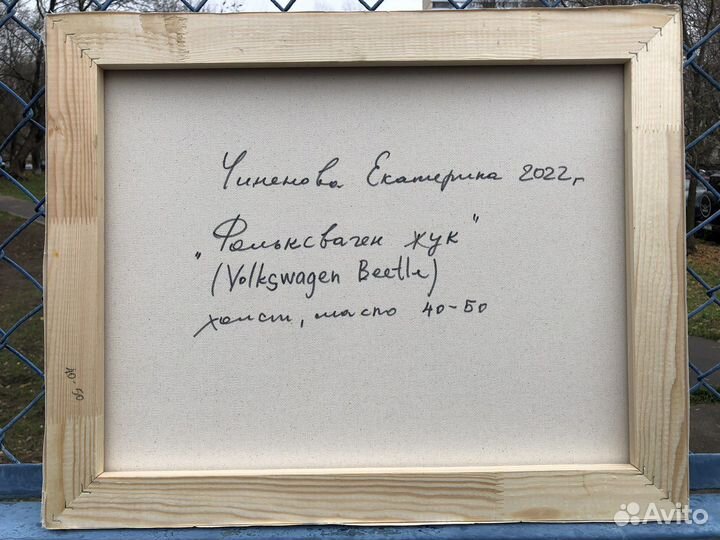 Чиненова Екатерина 2022г
„Фольксваген жук"
(Volkswagen Beetle)
холст, масло 40-50
40-50
Avito